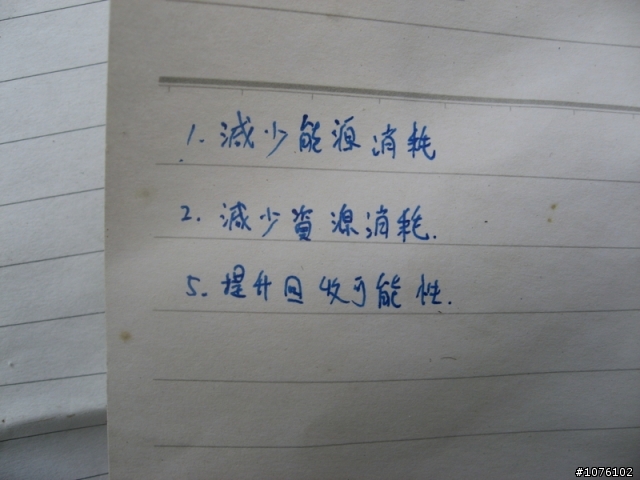 1. 減少能源消耗
2. 減少資源消耗.
5. 提升回收可能性.
#1076102